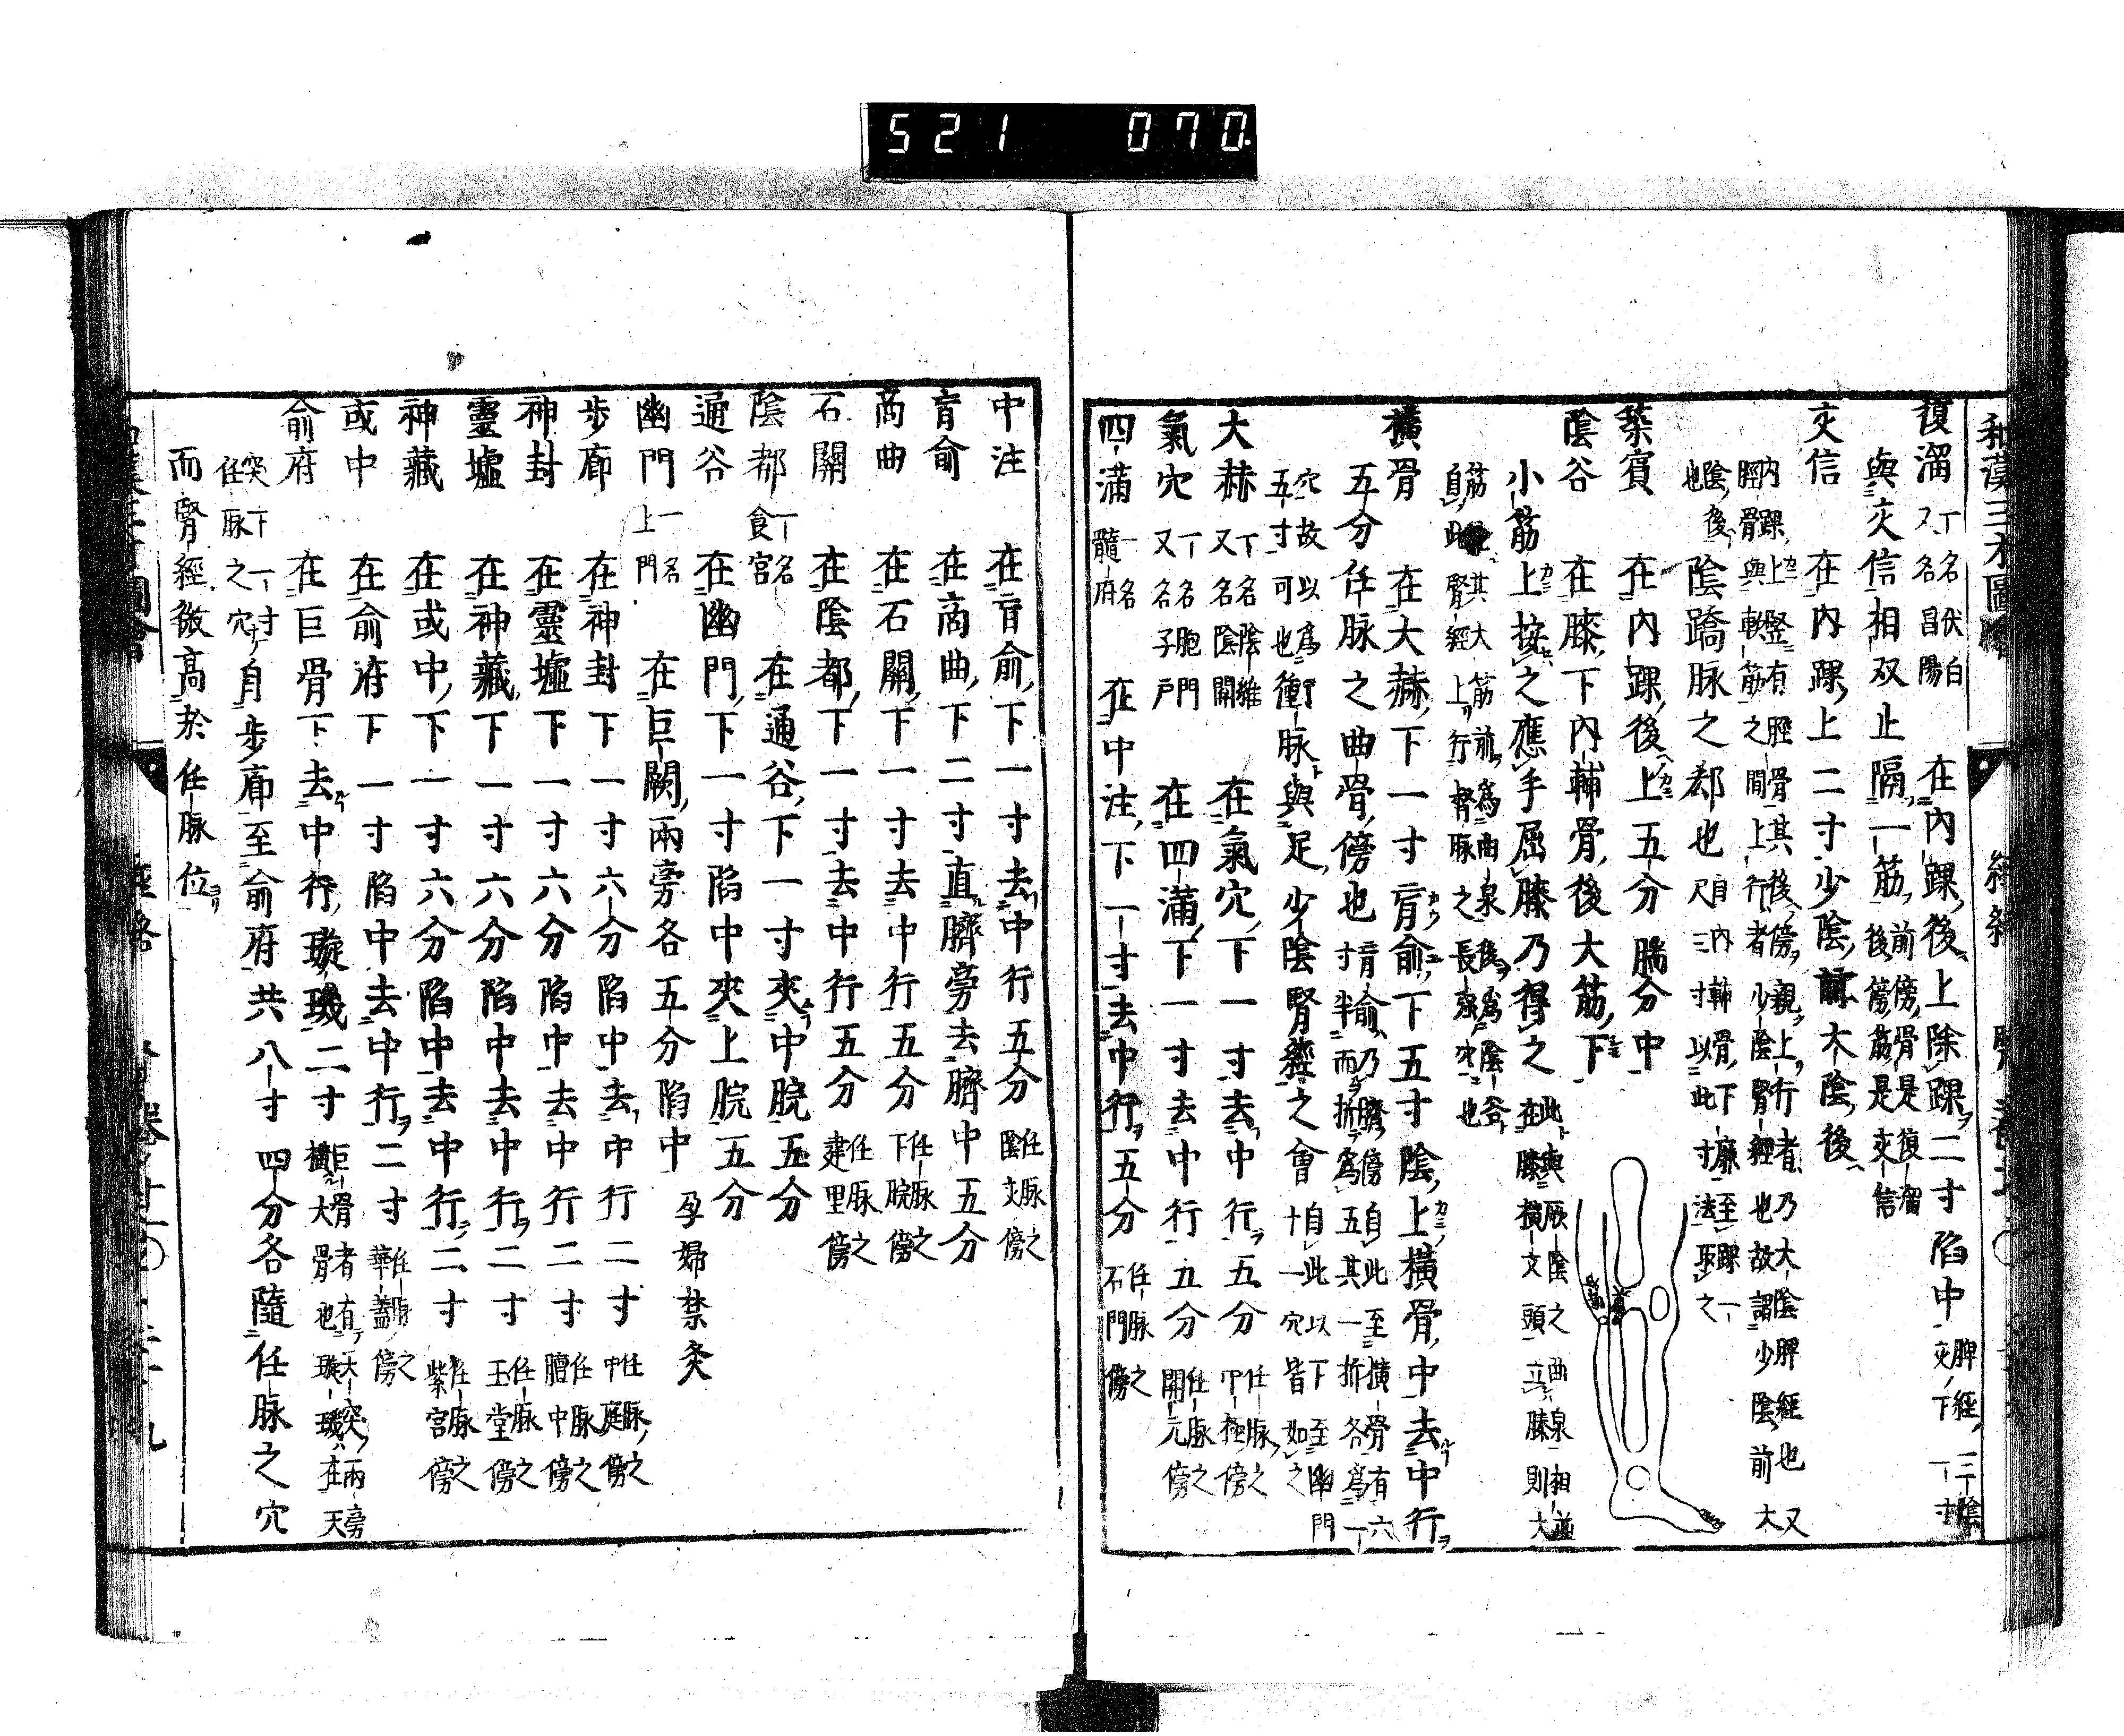 521 070
和漢三才圖會 經絡
復溜 一名伏白 又名昌陽 在內踝後上除踝二寸陷中 脾經三陰交下一寸
與交信相双止隔一筋 前傍骨是復溜 後傍筋是交信
交信 在內踝上二寸少陰前大陰後
內踝上竪有脛骨其後傍親上行者乃大陰脾經也又
脛骨與軟筋之間上行者少陰腎經也故謂少陰前大
陰後也 陰蹻脉之郄也 自內輔骨下廉至踝一尺三寸以此寸法取之
築賓 在內踝後上五分腨分中
陰谷 在膝下內輔骨後大筋下
小筋上按之應手屈膝乃得之 此與厥陰之曲泉相並 在膝橫文頭立膝則大
筋其大筋前爲曲泉後爲陰谷
自此腎經上行督脉之長強穴也
橫骨 在大赫下一寸肓俞下五寸陰上橫骨中去中行
五分任脉之曲骨傍也 肓俞乃臍傍自此至橫骨有六寸半而折爲五其一折各爲一
穴故以爲五寸可也 衝脉與足少陰腎經之會 自此以下至幽門十一穴皆如之
大赫 一名陰維 又名陰關 在氣穴下一寸去中行五分 任脉中極之傍
氣穴 一名胞門 又名子戶 在四滿下一寸去中行五分 任脉關元之傍
四滿 一名髓府 在中注下一寸去中行五分 任脉石門之傍
中注 在肓俞下一寸去中行五分 任脉陰交之傍
肓俞 在商曲下二寸直臍旁去臍中五分
商曲 在石關下一寸去中行五分 任脉下脘之傍
石關 在陰都下一寸去中行五分 任脉建里之傍
陰都 一名食宮 在通谷下一寸夾中脘五分
通谷 在幽門下一寸陷中夾上脘五分
幽門 一名上門 在巨闕兩旁各五分陷中 孕婦禁灸
步廊 在神封下一寸六分陷中去中行二寸 任脉中庭之傍
神封 在靈墟下一寸六分陷中去中行二寸 任脉膻中之傍
靈墟 在神藏下一寸六分陷中去中行二寸 任脉玉堂之傍
神藏 在或中下一寸六分陷中去中行二寸 任脉紫宮之傍
或中 在俞府下一寸陷中去中行二寸 任脉華蓋之傍
俞府 在巨骨下去中行璇璣二寸 巨骨者有大突兩旁橫大骨也璇璣在天
突下一寸任脉之穴 自步廊至俞府共八寸四分各隨任脉之穴
而腎經微高於任脉位